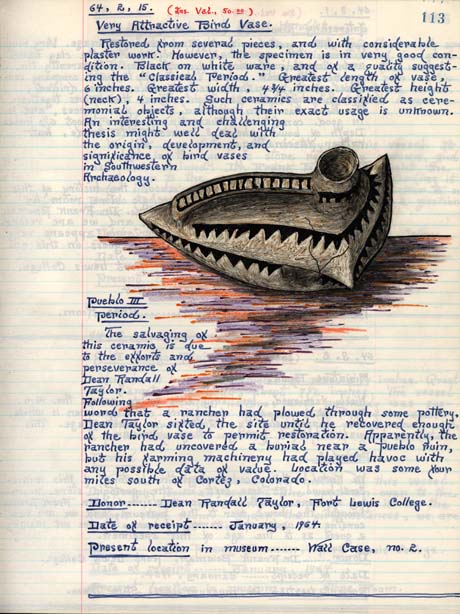 64, 2, 15. (Ins. Val., 50.00)
113
Very Attractive Bird Vase.
Restored from several pieces, and with considerable
plaster work. However, the specimen is in very good con-
dition. Black on white ware, and of a quality suggest-
ing the "Classical Period." Greatest length of vase,
6 inches. Greatest width, 4 3/4 inches. Greatest height
(neck), 4 inches. Such ceramics are classified as cere-
monial objects, although their exact usage is unknown.
An interesting and challenging
thesis might well deal with
the origin, development, and
significance, of bird vases
in Southwestern
Archaeology.
Pueblo III
Period.
The salvaging of
this ceramic is due
to the efforts and
perseverance of
Dean Randall
Taylor.
Following
word that a rancher had plowed through some pottery,
Dean Taylor sifted, the site until he recovered enough
of the bird vase to permit restoration. Apparently, the
rancher had uncovered a burial near a Pueblo ruin,
but his farming machinery had played havoc with
any possible data of value. Location was some four
miles south of Cortez, Colorado.
Donor ------- Dean Randall Taylor, Fort Lewis College.
Date of receipt ------ January, 1964.
Present location in museum ------- Wall Case, no. 2.